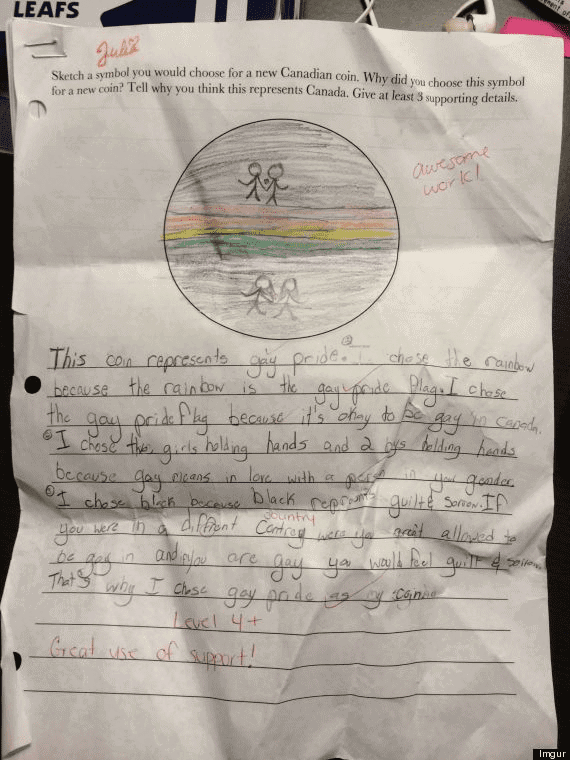 LEAFS
Julia
Sketch a symbol you would choose for a new Canadian coin. Why did you choose this symbol
for a new coin? Tell why you think this represents Canada. Give at least 3 supporting details.
awesome
work!
This coin represents gay pride. I chose the rainbow
because the rainbow is the gay pride flag. I chose
the gay pride flag because it's okay to be gay in canada.
I chose the girls holding hands and 2 boys holding hands
because gay means in love with a person in your gender.
I chose black because black represents guilt & sorrow. If
country
you were in a diffrent were you arent allowed to
be gay in and you are gay you would feel guilt & sorrow
That's why I chose gay pride as my
Level 4+
Great use of support!
Imgur